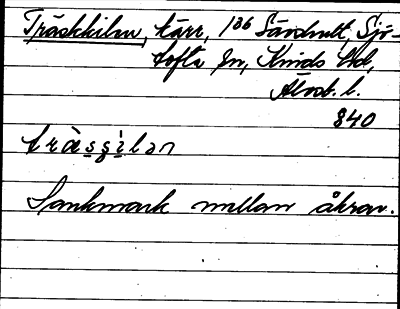 Träskkilen, kärr, 1³⁶ Sandhult, Sjö-
tofta sn, Kinds hd,
Älvsb. l.
840
Sankmark mellan åkrar.